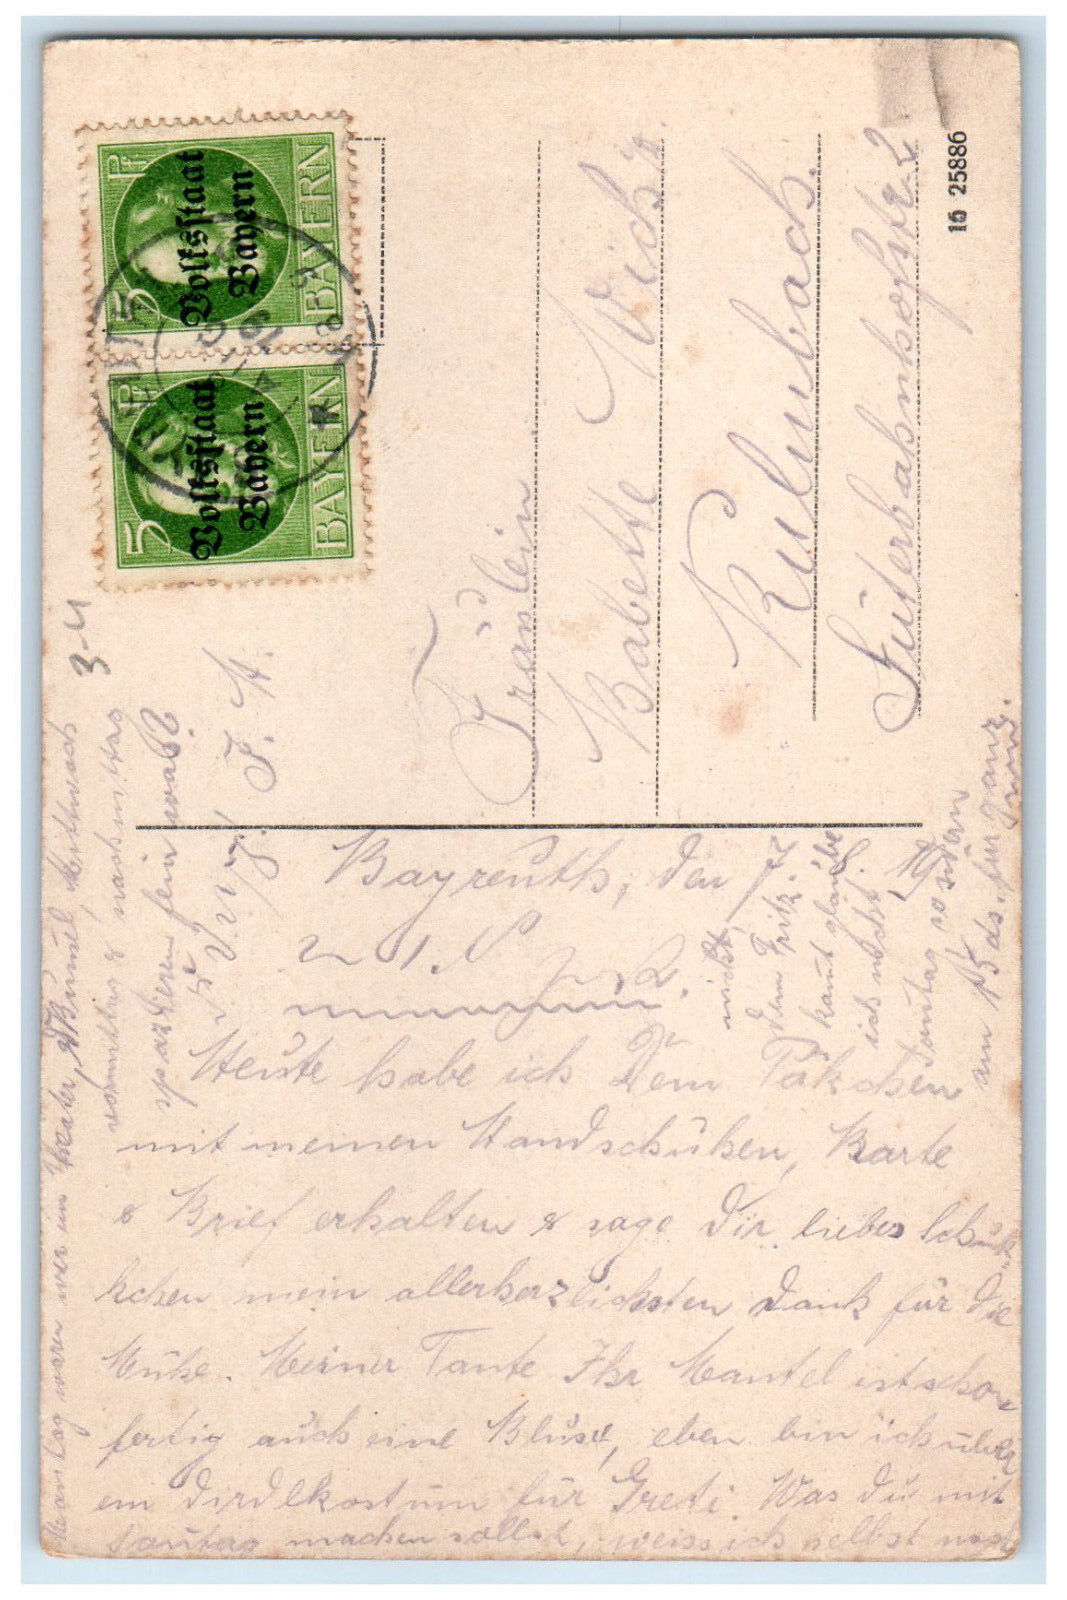 5 Pf
Volksstaat
Bayern
BAYERN
5 Pf
Volksstaat
Bayern
BAYERN
16 25886
3-4
Fräulein
Babette Wich
Kulmbach.
Güterbahnhofstr 2
Bayreuth, den
Heute habe ich Dein Päkchen
mit meinen Handschuhen, Karte
& Brief erhalten & sage Dir liebes
mein allerherzlichsten Dank für die
Mühe. Meiner Tante Ihr Mantel ist schon
fertig auch eine Bluse, eben bin ich über
ein Dirdlkostüm für Greti. Was Du mit
Sontag machen sollst, weiss ich selbst noch
nicht,
dem Fritz
kaut glaube
ich nicht,
Sontag sondern
am 15 ds. für ganz
waren wir im Theater, Mittwoch
vormittag & nachmittag
spazieren fein was?